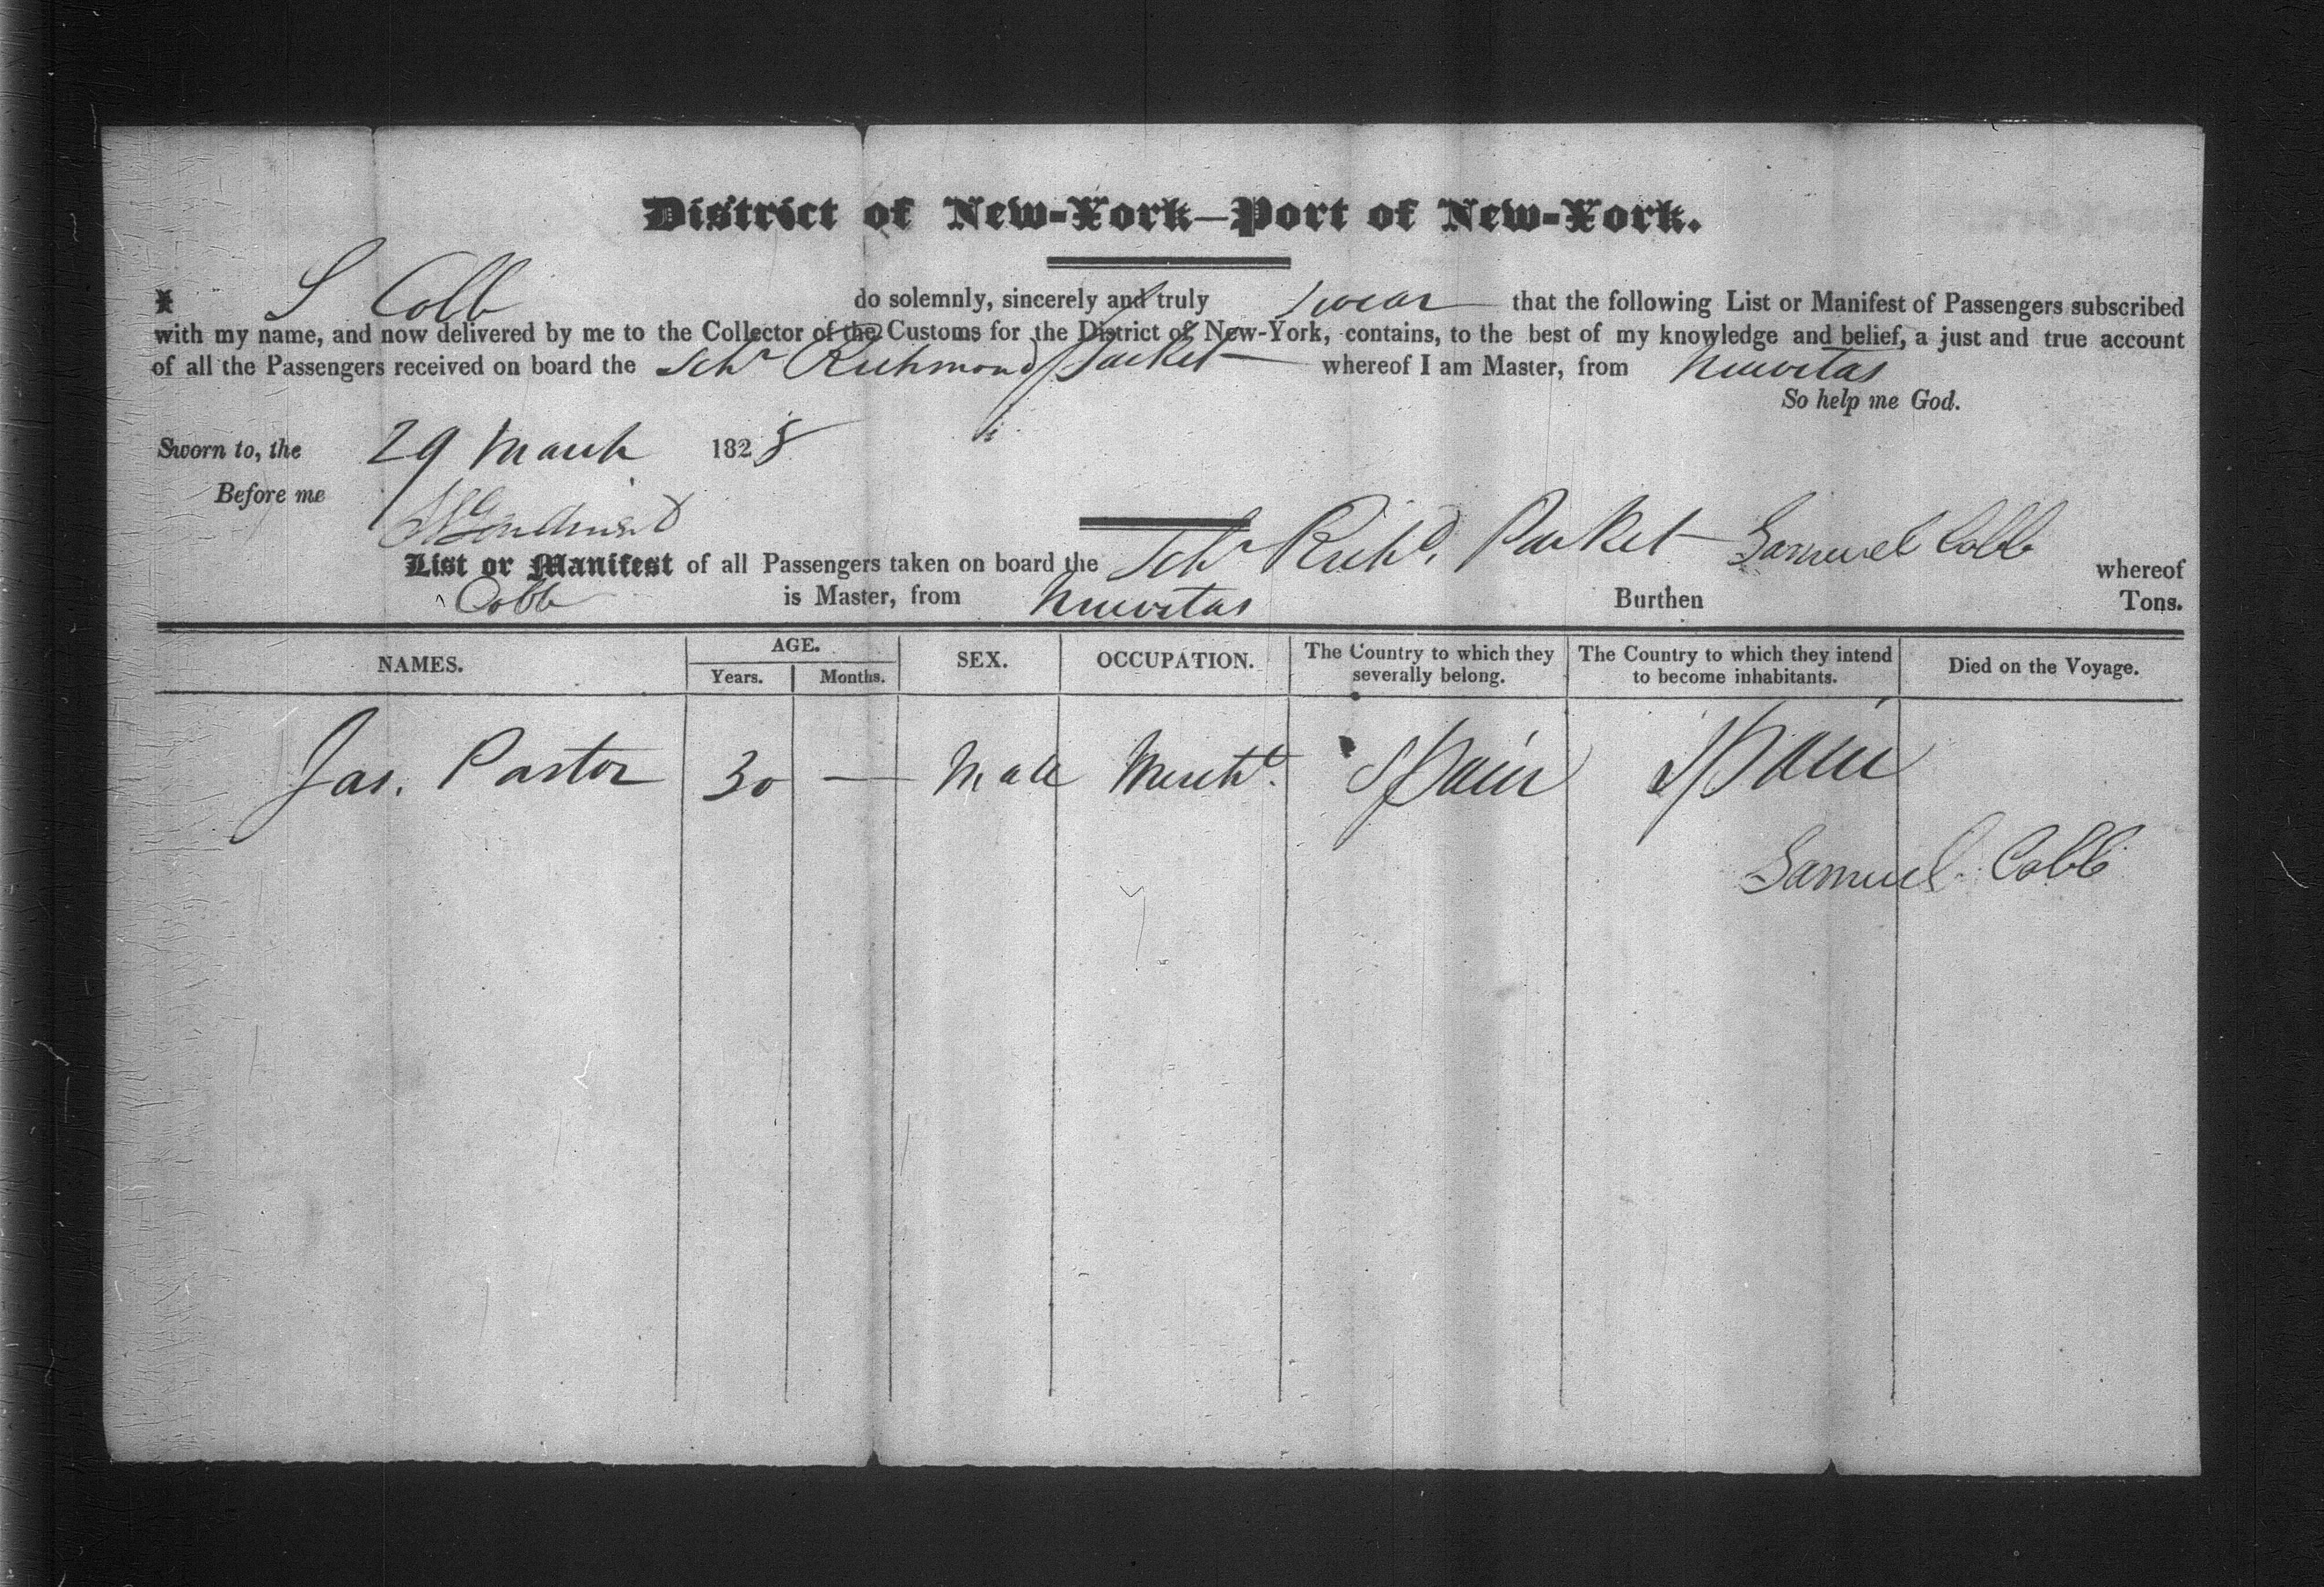 District of New-York—Port of New-York.
I S Cobb do solemnly, sincerely and truly swear that the following List or Manifest of Passengers subscribed
with my name, and now delivered by me to the Collector of the Customs for the District of New-York, contains, to the best of my knowledge and belief, a just and true account
of all the Passengers received on board the Schr Richmond Packet whereof I am Master, from Nuevitas
So help me God.
Sworn to, the 29 March 1828
Before me
List or Manifest of all Passengers taken on board the Schr Richd. Packet Samuel Cobb whereof
Cobb is Master, from Nuevitas Burthen Tons.
NAMES. AGE. Years. Months. SEX. OCCUPATION. The Country to which they severally belong. The Country to which they intend to become inhabitants. Died on the Voyage.
Jas. Pastor 30 — Male Mercht. Spain Spain
Samuel Cobb